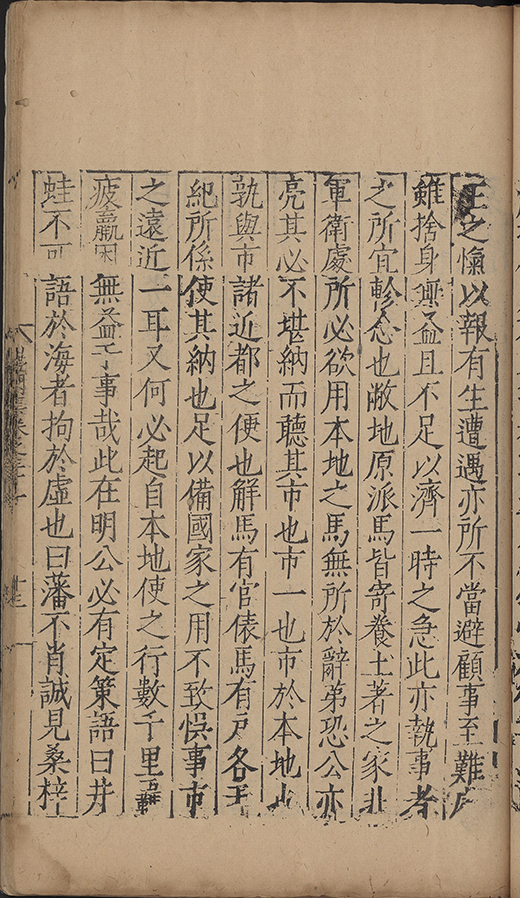 王之愾以報有生遭遇亦所不當避顧事至難
雖捨身無益且不足以濟一時之急此亦執事者
之所宜軫念也敝地原派馬皆寄養土著之家非
軍衛處所必欲用本地之馬無所於辭弟恐公亦
亮其必不堪納而聽其市也市一也市於本地
孰與市諸近都之便也解馬有官俵馬有戶各
紀所係使其納也足以備國家之用不致悞事市
之遠近一耳又何必起自本地使之行數千里
疲羸困無益于事哉此在明公必有定策語曰井
蛙不可語於海者拘於虛也曰藩不肖誠見桑梓